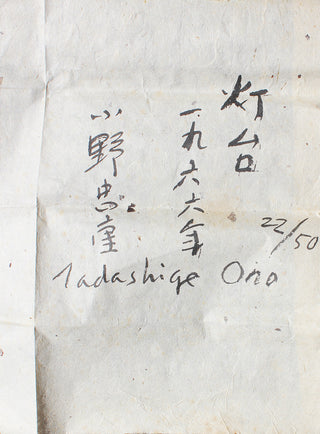 灯台
一九六六年
小野忠重
22/50
Tadashige Ono